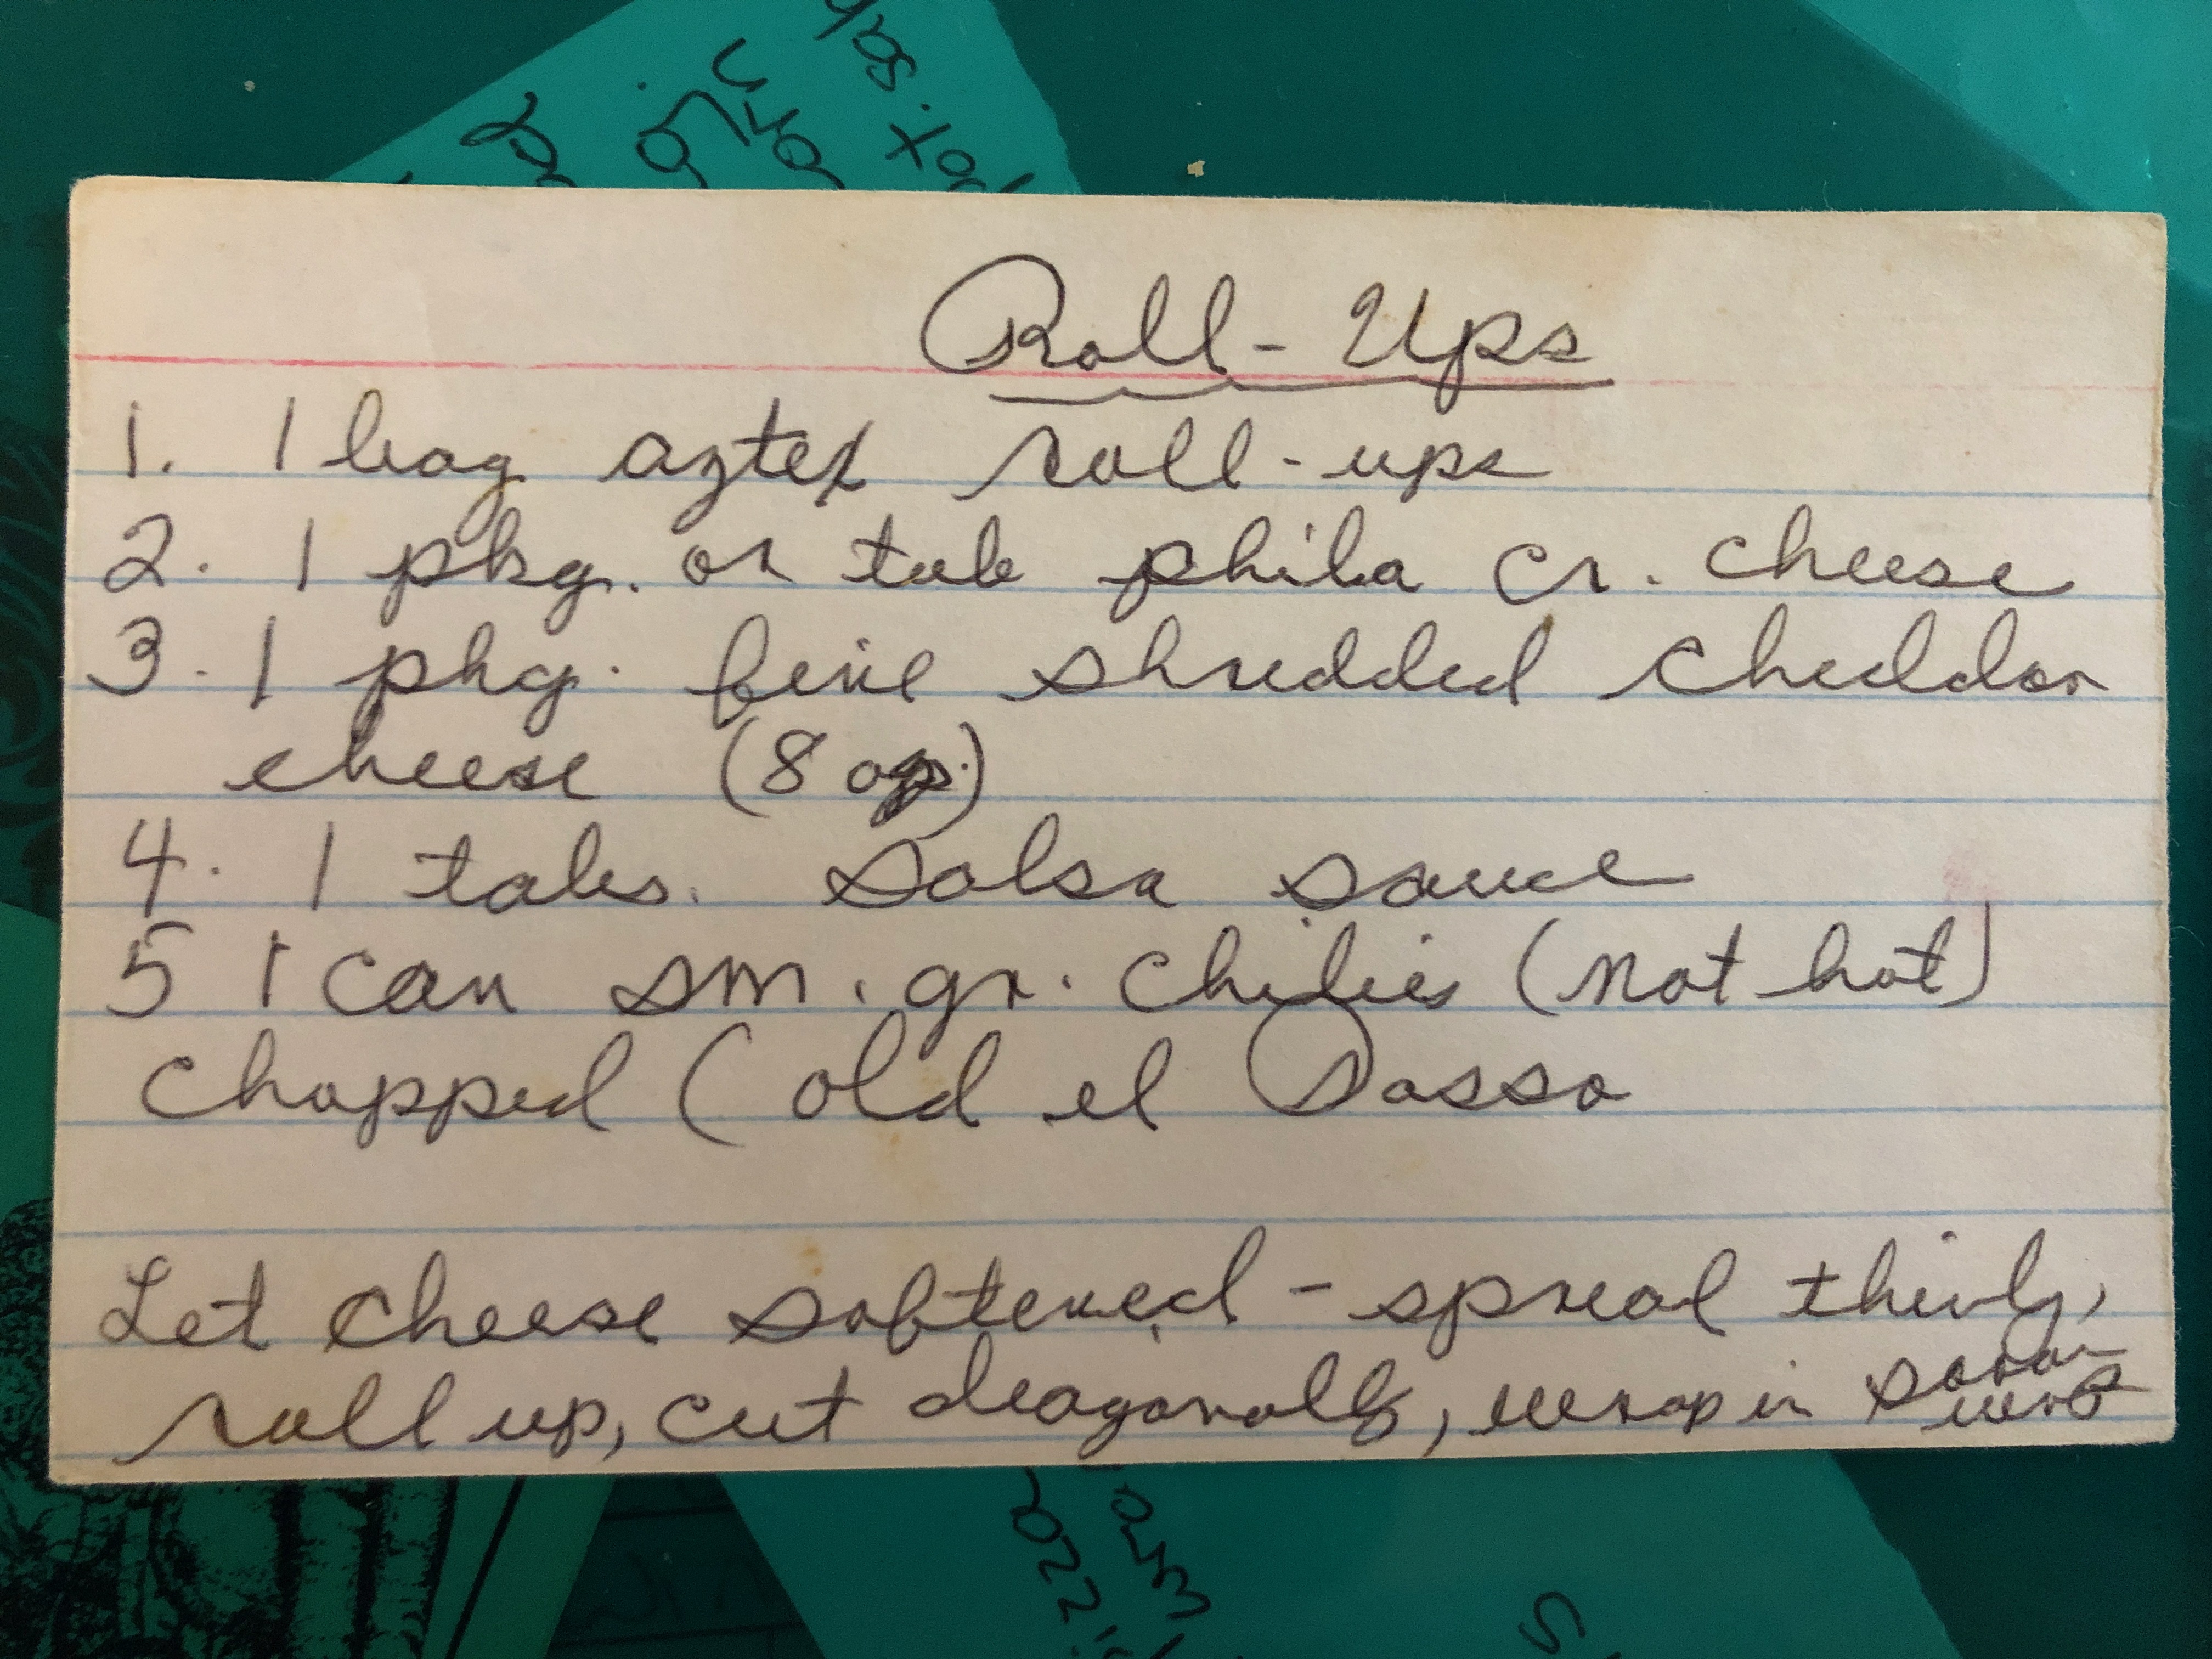 Roll-Ups
1. 1 bag aztex roll-ups
2. 1 pkg. or tub phila cr. cheese
3. 1 pkg. fine shredded cheddar
cheese (8 oz.)
4. 1 tabs. salsa sauce
5 1 can sm. gr. chilies (not hot)
chopped (old el Passo
Let cheese softened - spread thinly,
roll up, cut diagonally, wrap in saran
wrap